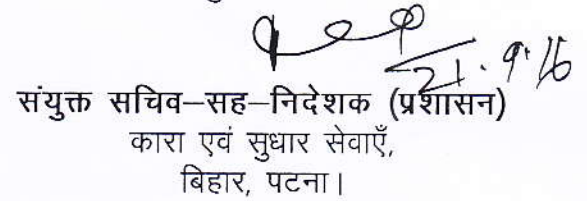 21.9.16
संयुक्त सचिव–सह–निदेशक (प्रशासन)
कारा एवं सुधार सेवाएँ,
बिहार, पटना।